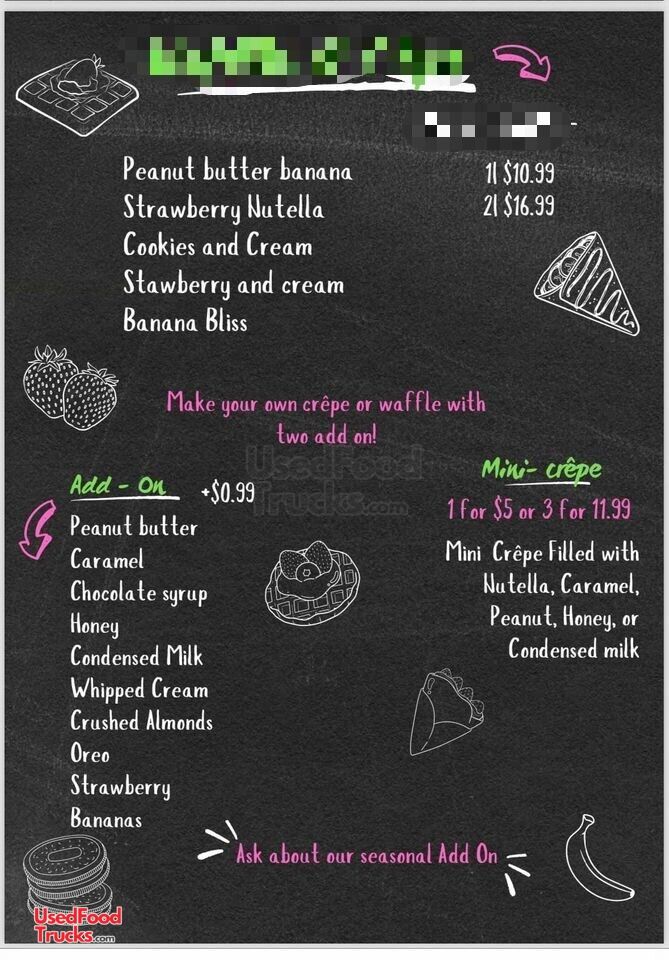 Peanut butter banana
1| $10.99
Strawberry Nutella
2| $16.99
Cookies and Cream
Stawberry and cream
Banana Bliss
Make your own crêpe or waffle with
two add on!
Add - On
+$0.99
Peanut butter
Caramel
Chocolate syrup
Honey
Condensed Milk
Whipped Cream
Crushed Almonds
Oreo
Strawberry
Bananas
Mini- crêpe
1 for $5 or 3 for 11.99
Mini Crêpe Filled with
Nutella, Caramel,
Peanut, Honey, or
Condensed milk
Ask about our seasonal Add On
UsedFood
Trucks.com
UsedFood
Trucks.com